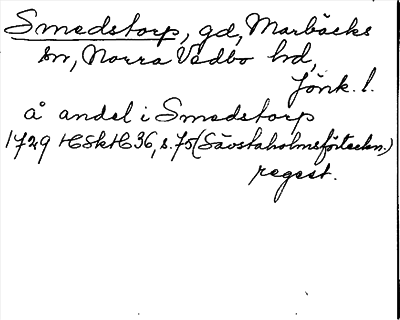 Smedstorp, gd, Marbäcks
sn, Norra Vedbo hd,
Jönk. l.
å andel i Smedstorp
1729 HSkH 36, s. 75 (Sävstaholmsförteckn.)
regest.